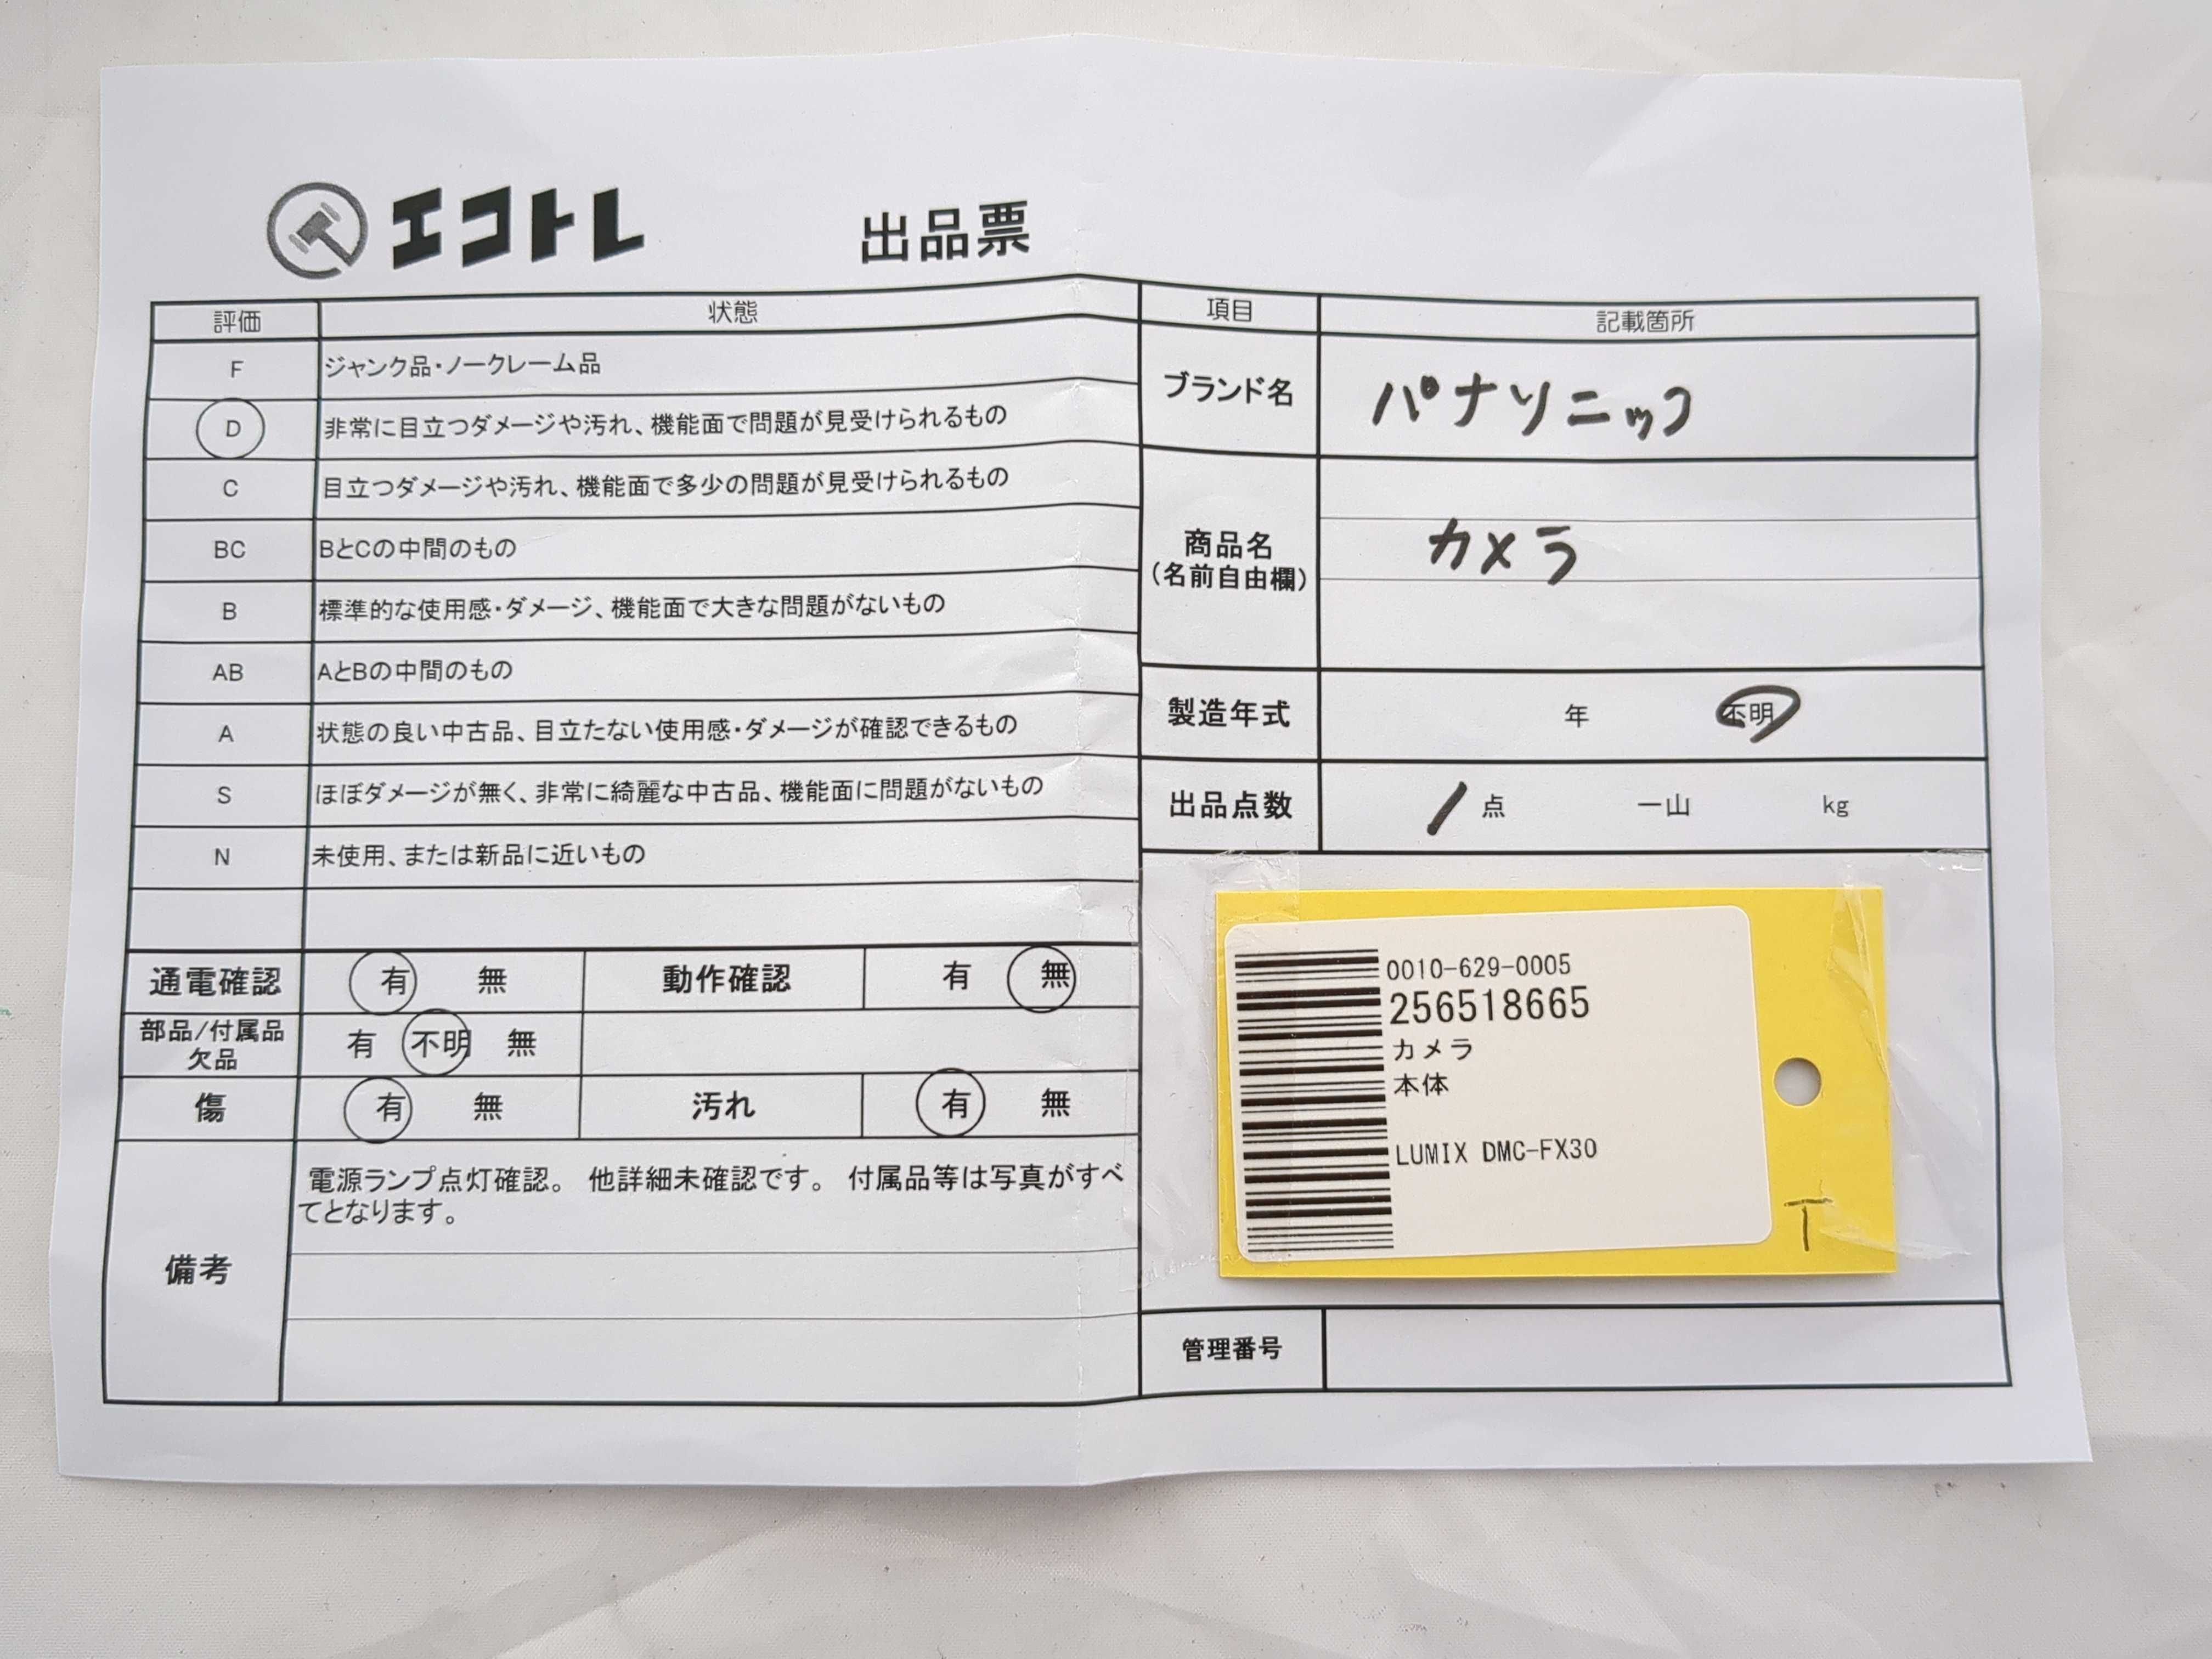 エコトレ 出品票
評価 状態
F ジャンク品・ノークレーム品
D 非常に目立つダメージや汚れ、機能面で問題が見受けられるもの
C 目立つダメージや汚れ、機能面で多少の問題が見受けられるもの
BC BとCの中間のもの
B 標準的な使用感・ダメージ、機能面で大きな問題がないもの
AB AとBの中間のもの
A 状態の良い中古品、目立たない使用感・ダメージが確認できるもの
S ほぼダメージが無く、非常に綺麗な中古品、機能面に問題がないもの
N 未使用、または新品に近いもの
通電確認 有 無 動作確認 有 無
部品/付属品
欠品 有 不明 無
傷 有 無 汚れ 有 無
備考
電源ランプ点灯確認。 他詳細未確認です。 付属品等は写真がすべ
てとなります。
項目 記載箇所
ブランド名 パナソニック
商品名
(名前自由欄) カメラ
製造年式 年 不明
出品点数 1 点 一山 kg
0010-629-0005
256518665
カメラ
本体
LUMIX DMC-FX30
T
管理番号